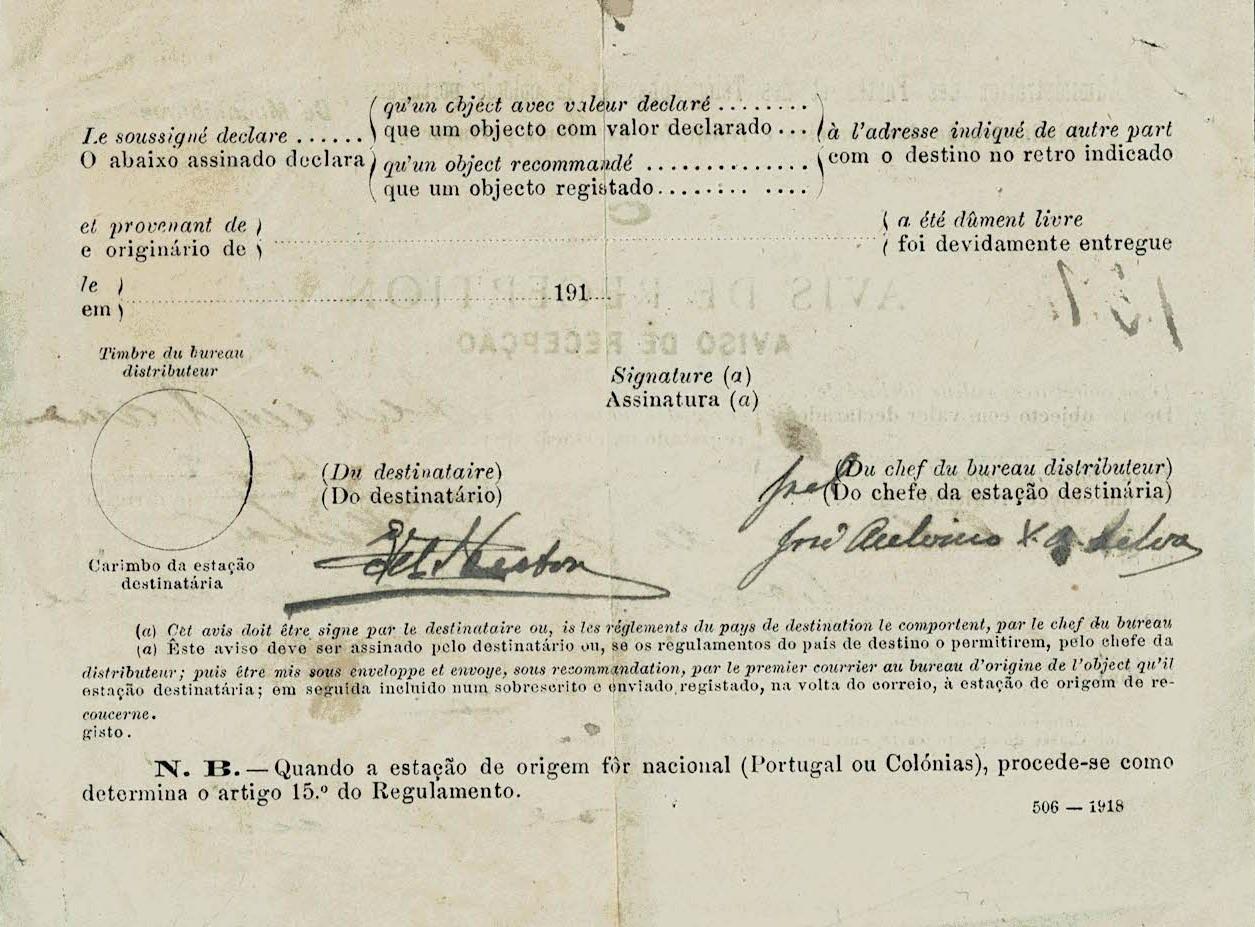 Le soussigné declare ......
O abaixo assinado declara
qu'un object avec valeur declaré ........
que um objecto com valor declarado ...
qu'un object recommandé ..............
que um objecto registado........ ....
à l'adresse indiqué de autre part
com o destino no retro indicado
et provenant de
e originário de
a été dûment livre
foi devidamente entregue
le
em
191....
Timbre du bureau
distributeur
Signature (a)
Assinatura (a)
(Du destinataire)
(Do destinatário)
(Du chef du bureau distributeur)
(Do chefe da estação destinária)
José Antonio X. a Silva
Carimbo da estação
destinatária
(a) Cet avis doit être signe par le destinataire ou, is les réglements du pays de destination le comportent, par le chef du bureau
(a) Êste aviso deve ser assinado pelo destinatário ou, se os regulamentos do país de destino o permitirem, pelo chefe da
distributeur; puis être mis sous enveloppe et envoye, sous recommandation, par le premier courrier au bureau d'origine de l'object qu'il
estação destinatária; em seguida incluido num sobrescrito e enviado registado, na volta do correio, à estação de origem de re-
coucerne.
gisto.
N. B.—Quando a estação de origem fôr nacional (Portugal ou Colónias), procede-se como
determina o artigo 15.º do Regulamento.
506 — 1918